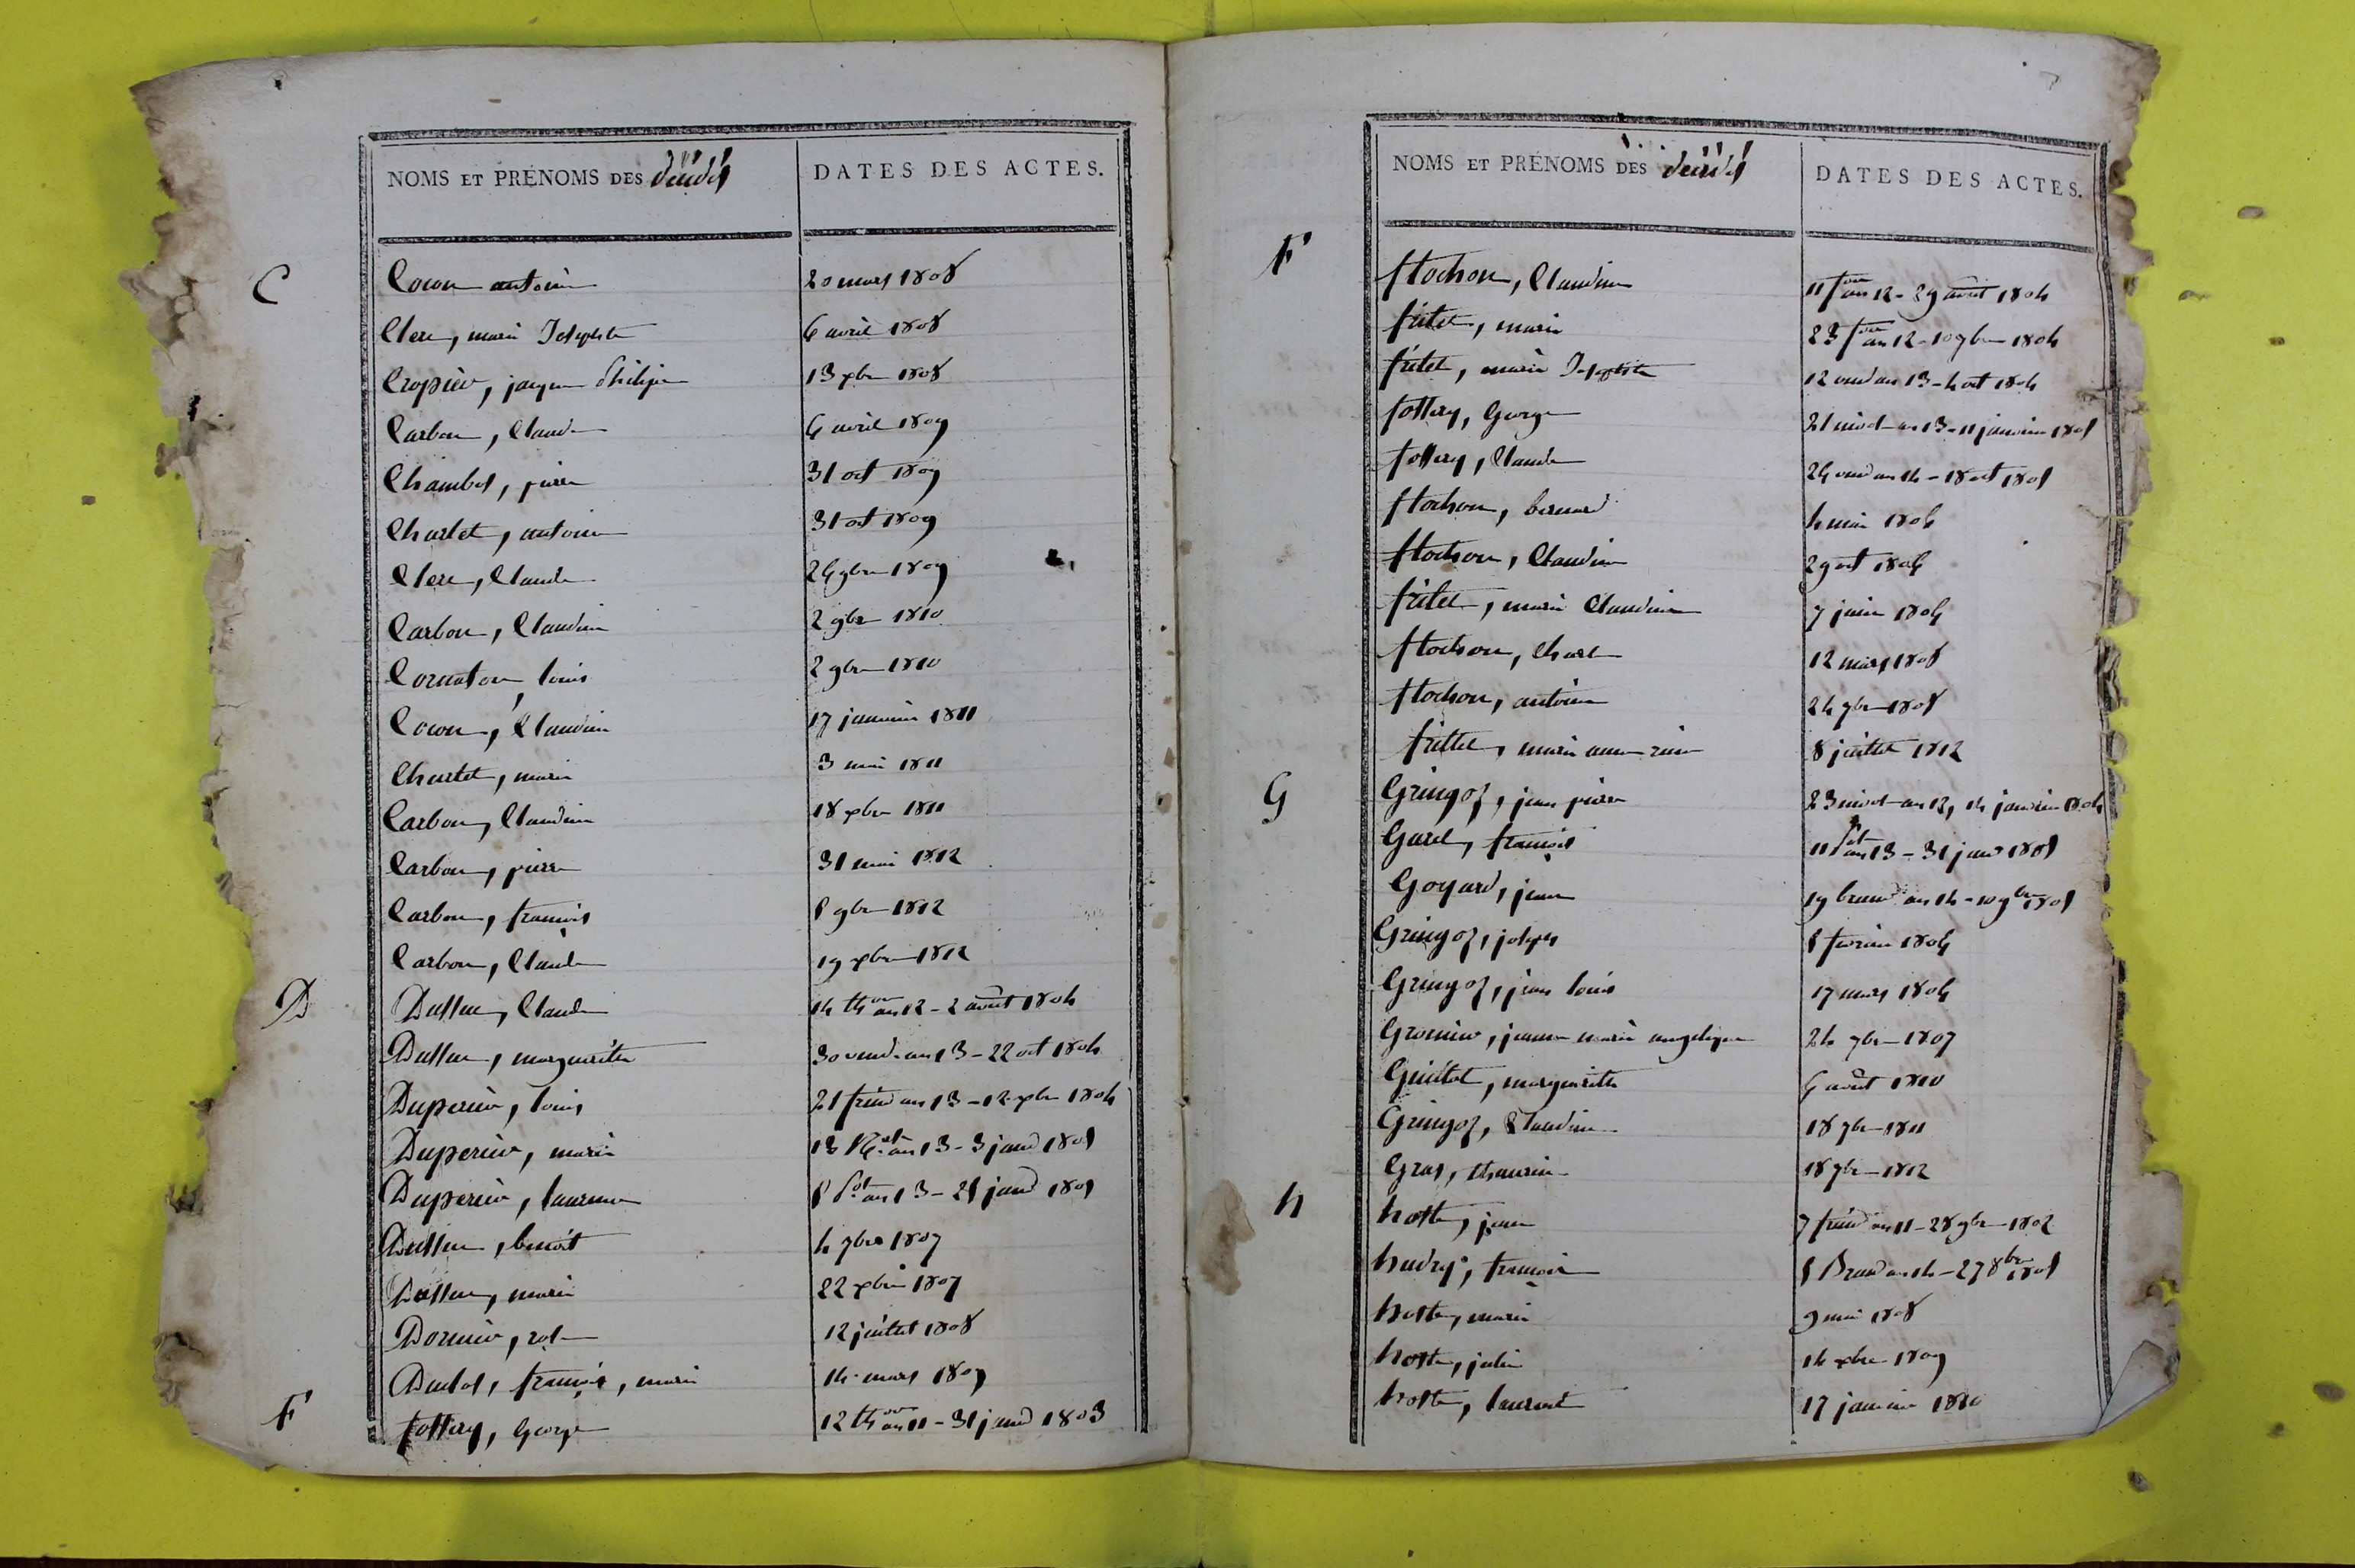 NOMS ET PRÉNOMS DES décédés
DATES DES ACTES.
C
Cocon antoine 20 mars 1808
Clerc, marie Josephte 6 avril 1808
Cropier, jacques Philipe 13 xbre 1808
Carbon, Claude 6 avril 1809
Chambel, pierre 31 oct 1809
Charlet, antoine 31 oct 1809
Clerc, Claude 26 gbre 1809
Carbon, Claudine 2 gbre 1810
Cornaton louis 2 gbre 1810
Cocon, Claudine 17 janvier 1811
Charlet, marie 3 mai 1811
Carbon, Claudine 18 xbre 1811
Carbon, pierre 31 mai 1812
Carbon, francois 5 gbre 1812
Carbon, Claude 19 xbre 1812
D
Dussuc, Claude 14 thor an 12 - 2 août 1804
Dussuc, marguerite 30 vend. an 13 - 22 oct 1804
Duperier, louis 21 frim an 13 - 12 xbre 1804
Duperier, marie 13 an 13 - 3 janv 1805
Duperier, laurence 5 an 13 - 25 janv 1805
Dussuc, benoit 4 gbre 1807
Dussuc, marie 22 xbre 1807
Dormier, rose 12 juillet 1808
Dubos, francois, marie 14 mars 1809
F
fossery, George 12 an 11 - 31 janv 1803
NOMS ET PRÉNOMS DES décédés
DATES DES ACTES.
F
flochon, Claudine 11 for an 12 - 29 août 1804
frilet, marie 23 for an 12 - 10 gbre 1804
frilet, marie Josephte 12 vend an 13 - 4 oct 1804
fossery, George 21 nivos an 13 - 11 janvier 1805
fossery, Claude 26 vend an 14 - 18 oct 1805
flochon, bernard 4 mai 1806
flochon, Claudine 29 oct 1806
frilet, marie Claudine 7 juin 1806
flochon, Charle 12 mars 1808
flochon, antoine 24 gbre 1808
frillet, marie anne 8 juillet 1812
G
Gringoz, jean pierre 23 nivos an 12, 14 janvier 1804
Garel, francois 11 an 13 - 31 janv 1805
Goyard, jean 19 brum an 14 - 10 gbre 1805
Gringoz, joseph 5 fevrier 1806
Gringoz, jean louis 17 mars 1806
Gromier, jeanne marie angelique 24 gbre 1807
Guillot, marguerite 6 août 1810
Gringoz, Claudine 18 gbre 1811
Gras, thaurin 18 gbre 1812
h
hoste, jean 7 frim an 11 - 28 gbre 1802
hudry, francois 5 Brum an 14 - 27 8bre 1805
hoste, marie 9 mai 1808
hoste, julie 14 xbre 1809
hoste, laurent 17 janvier 1810